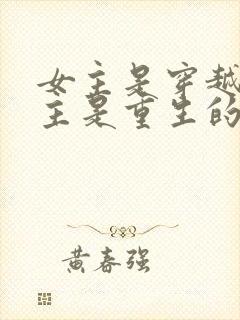 女主是穿越
主是重生的
黄春强